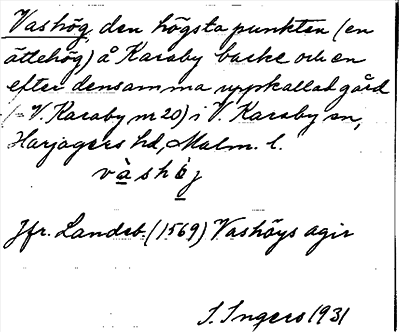 Vashög, den högsta punkten (en
ättehög) å Karaby backe och en
efter densamma uppkallad gård
(= V. Karaby nr 20) i V. Karaby sn,
Harjagers hd, Malm. l.
vàshö́j
Jfr. Landsb. (1569) Vashöys agir
I. Ingers 1931